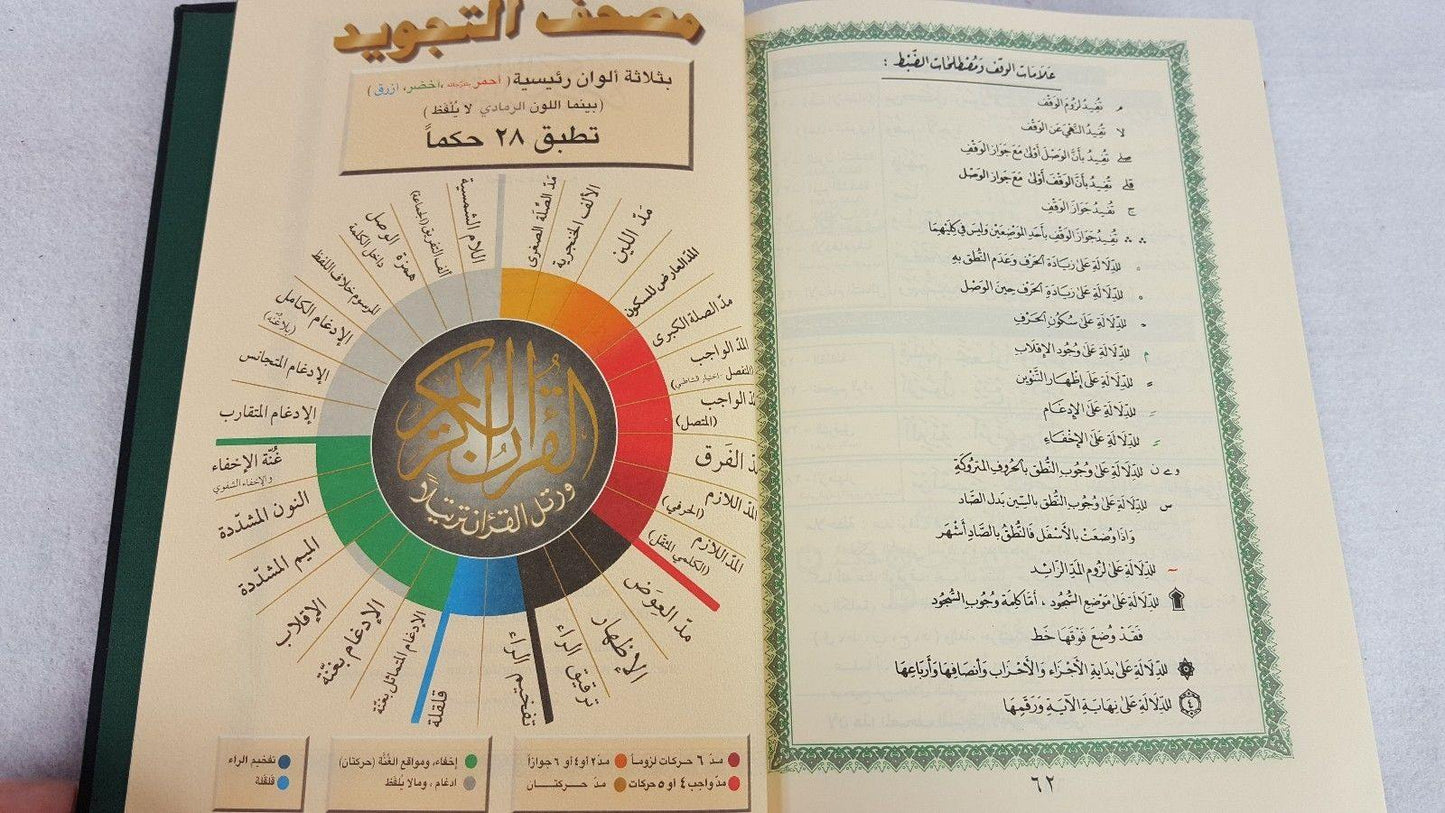 علامات الوقف ومصطلحات الضبط :
م تفيد لزوم الوقف
لا تفيد النهي عن الوقف
صلى تفيد بأن الوصل أولى مع جواز الوقف
قلى تفيد بأن الوقف أولى مع جواز الوصل
ج تفيد جواز الوقف
تفيد جواز الوقف بأحد الموضعين وليس في كليهما
للدلالة على زيادة الحرف وعدم النطق به
للدلالة على زيادة الحرف حين الوصل
للدلالة على سكون الحرف
م للدلالة على وجود الإقلاب
للدلالة على إظهار التنوين
للدلالة على الإدغام
للدلالة على الإخفاء
و ے ن للدلالة على وجوب النطق بالحروف المتروكة
س للدلالة على وجوب النطق بالسين بدل الصاد
وإذا وضعت بالأسفل فالنطق بالصاد أشهر
~ للدلالة على لزوم المد الزائد
للدلالة على موضع السجود ، أما كلمة وجوب السجود
فقد وضع فوقها خط
للدلالة على بداية الأجزاء والأحزاب وأنصافها وأرباعها
٤ للدلالة على نهاية الآية ورقمها
٦٢
مصحف التجويد
بثلاثة ألوان رئيسية ( أحمر ،أخضر، أزرق )
(بينما اللون الرمادي لا يُلفظ)
تطبق ٢٨ حكماً
مدّ الصِّلَة الصغرى
الألف الخنجرية
مَدّ اللين
المدّ العارض للسكون
مدّ الصلة الكبرى
المدّ الواجب
(المنفصل - اختيار الشاطبي)
مدّ الواجب
(المتصل)
مدّ الفَرق
المدّ اللازم
(الحرفي)
المدّ اللازم
(الكلمي المثقّل)
مدّ العِوَض
الإظهار
ترقيق الراء
تفخيم الراء
قلقلة
الإدغام المتماثل بغنّة
الإدغام بغنّة
الإقلاب
الميم المشدّدة
النون المشدّدة
غُنّة الإخفاء
والإخفاء الشفوي
الإدغام المتقارب
الإدغام المتجانس
الإدغام الكامل
(بلا غُنّة)
المرسوم خلاف اللفظ
همزة الوصل
داخل الكلمة
ألف التفريق (الجماعة)
اللام الشمسية
القرآن الكريم
ورتل القرءان ترتيلاً
مدّ ٦ حركات لزوماً
مدّ ٢ أو ٤ أو ٦ جوازاً
مدّ واجب ٤ أو ٥ حركات
مدّ حركتان
إخفاء، ومواقع الغُنَّة (حركتان)
ادغام ، ومالا يُلفظ
تفخيم الراء
قلقلة